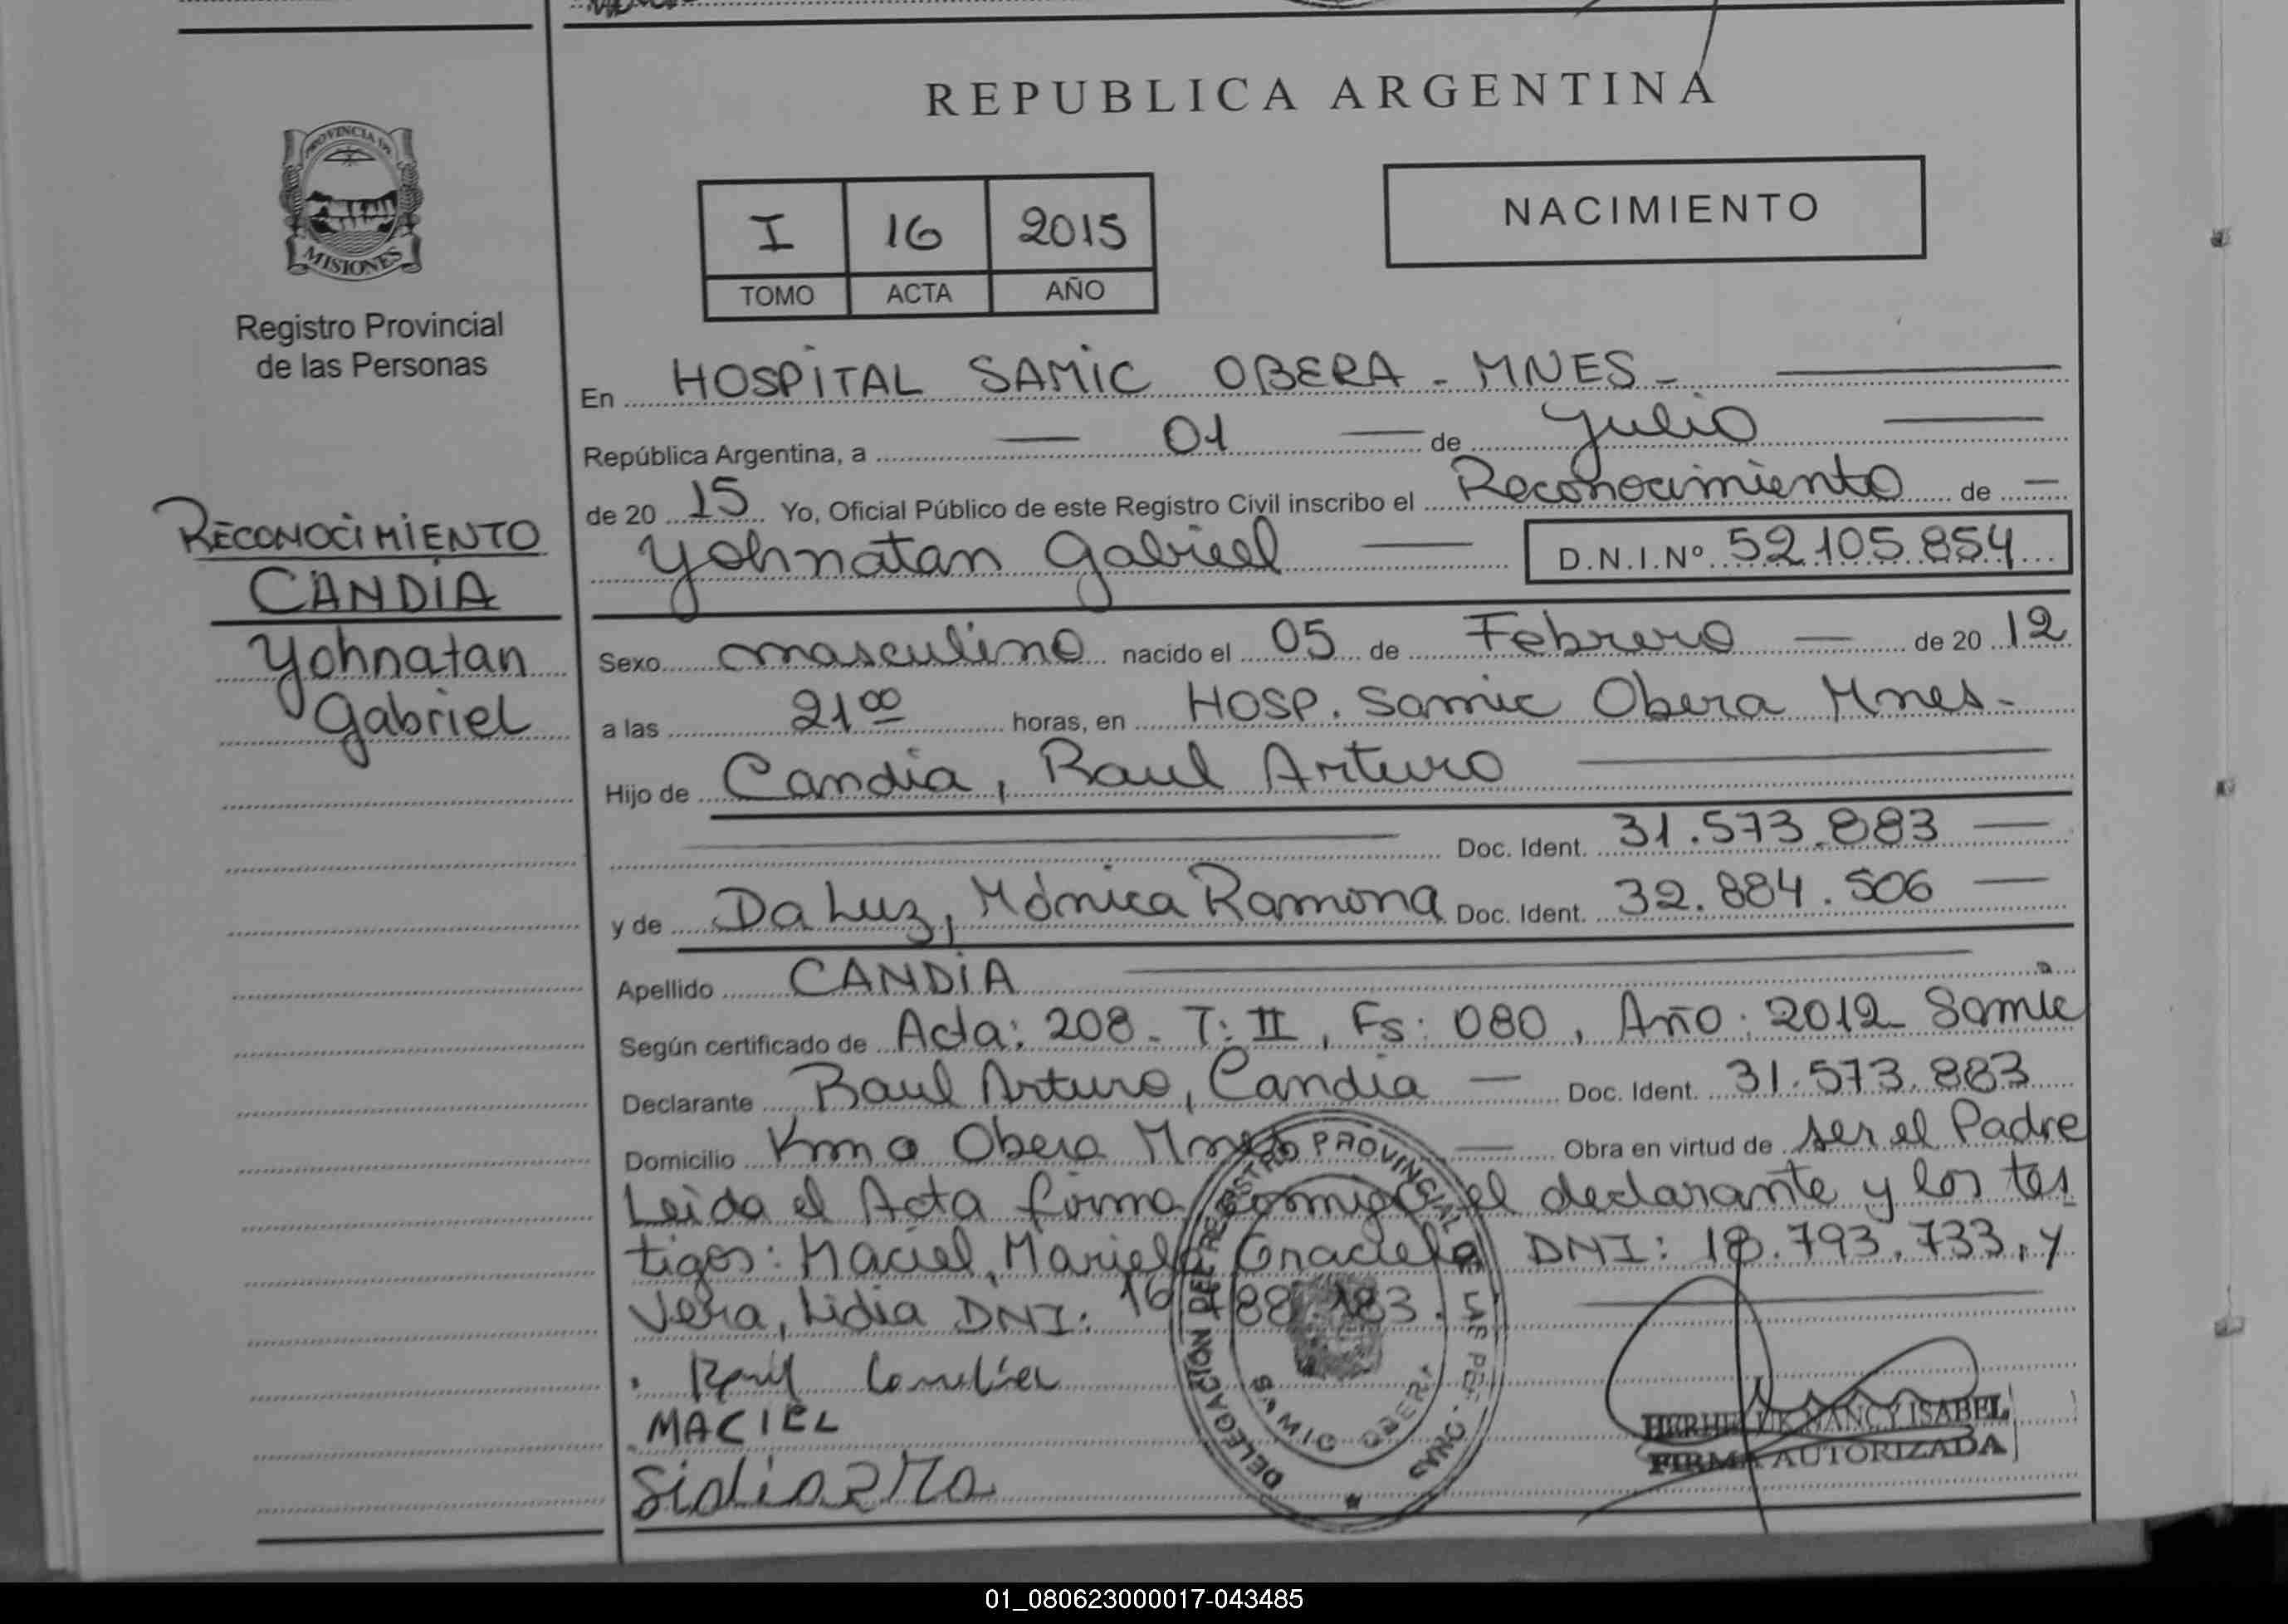 REPUBLICA ARGENTINA
PROVINCIA DE
MISIONES
Registro Provincial
de las Personas
I 16 2015
TOMO ACTA AÑO
NACIMIENTO
RECONOCIMIENTO
CANDIA
Yohnatan
Gabriel
En HOSPITAL SAMIC OBERA - MNES -
República Argentina, a — 01 — de Julio
de 20 15 Yo, Oficial Público de este Registro Civil inscribo el Reconocimiento de —
Yohnatan Gabriel — D.N.I.Nº 52.105.854
Sexo masculino nacido el 05 de Febrero — de 20 12
a las 21 00 horas, en HOSP. Samic Obera Mnes -
Hijo de Candia, Raul Arturo
Doc. Ident. 31.573.883 —
y de Da Luz, Mónica Ramona Doc. Ident. 32.884.506 —
Apellido CANDIA
Según certificado de Acta: 208 - T: II, Fs: 080, Año: 2012 Samic
Declarante Raul Arturo, Candia — Doc. Ident. 31.573.883
Domicilio Km 0 Obera Mnes — Obra en virtud de ser el Padre
Leida el Acta firma conmigo el declarante y los tes
tigos: Maciel, Mariela Graciela DNI: 18.793.733, y
Vera, Lidia DNI: 16 183.
Raul Candia
MACIEL
DELEGACIÓN DEL REGISTRO PROVINCIAL DE LAS PER
SAMIC OBERA
NANCY ISABEL
FIRMA AUTORIZADA
01_080623000017-043485